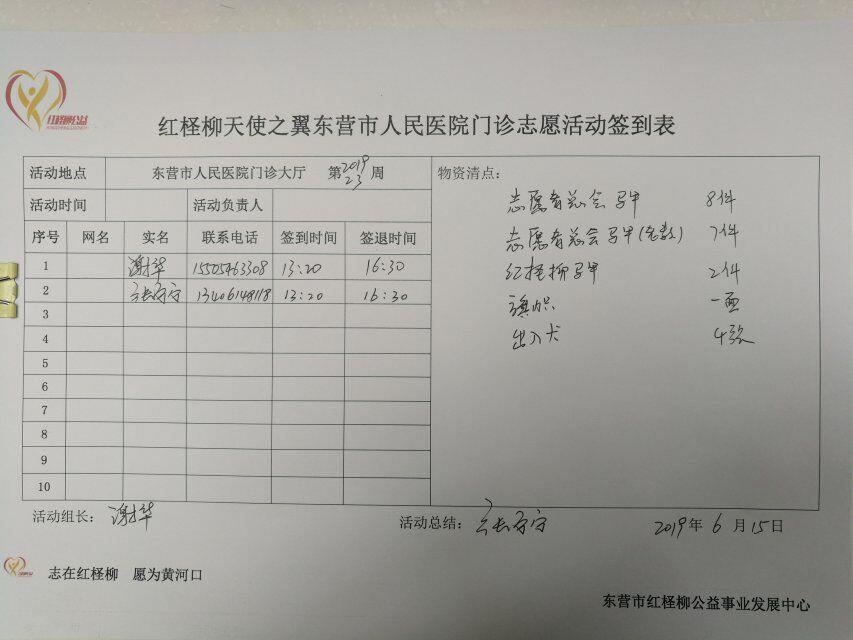 红柽柳公益
红柽柳天使之翼东营市人民医院门诊志愿活动签到表
活动地点 东营市人民医院门诊大厅 第2019 23周
活动时间 活动负责人
序号 网名 实名 联系电话 签到时间 签退时间
1 谢华 15505463308 13:20 16:30
2 13406148118 13:20 16:30
3
4
5
6
7
8
9
10
物资清点：
志愿者总会马甲 8件
志愿者总会马甲 7件
红柽柳马甲 2件
旗帜 一面
出入卡 4张
活动组长： 谢华
活动总结：
2019年6月15日
志在红柽柳 愿为黄河口
东营市红柽柳公益事业发展中心